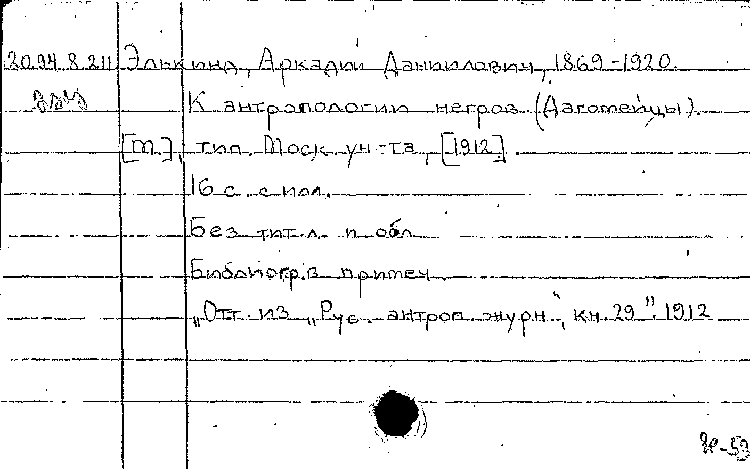 20.94.8.211 Элькинд, Аркадий Даниилович, 1869-1920.
К антропологии негров (Дагомейцы).
[М.], тип. Моск. ун-та, [1912].
16 с. с ил.
Без тит. л. и обл.
Библиогр. в примеч.
„Отт. из „Рус. антроп. журн.", кн. 29". 1912